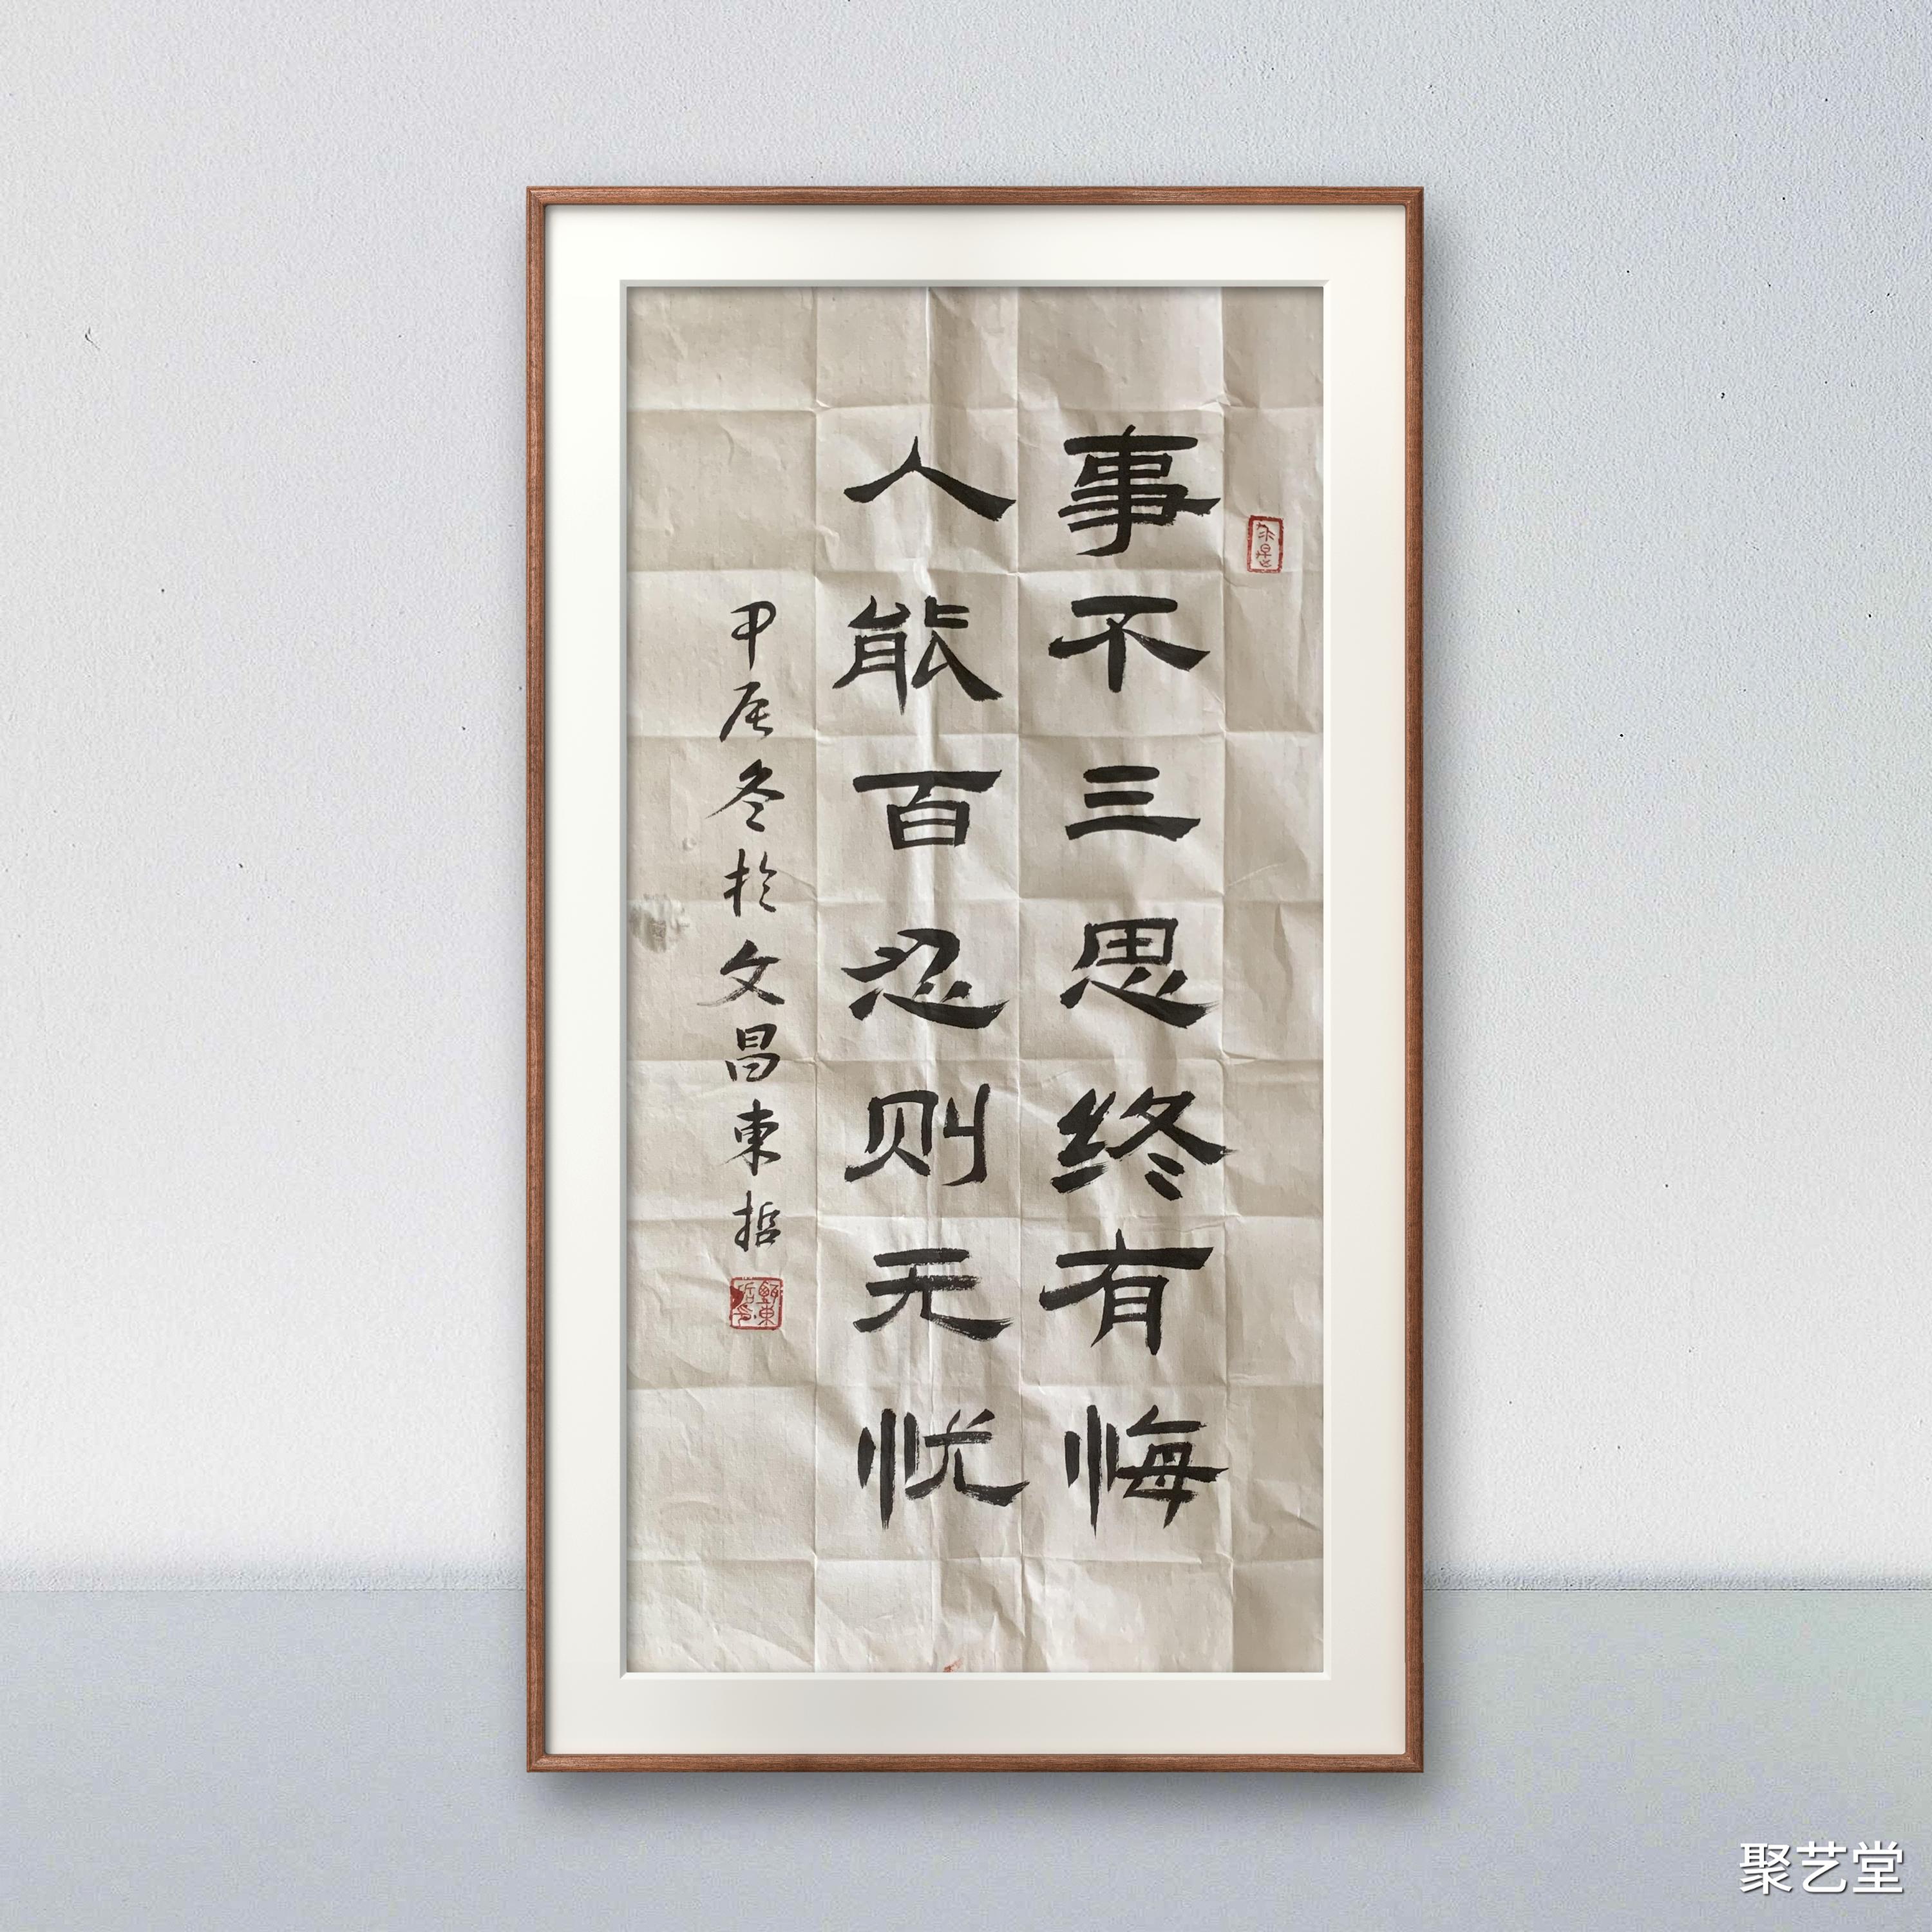 事不三思终有悔
人能百忍则无忧
甲辰冬於文昌東哲
聚艺堂